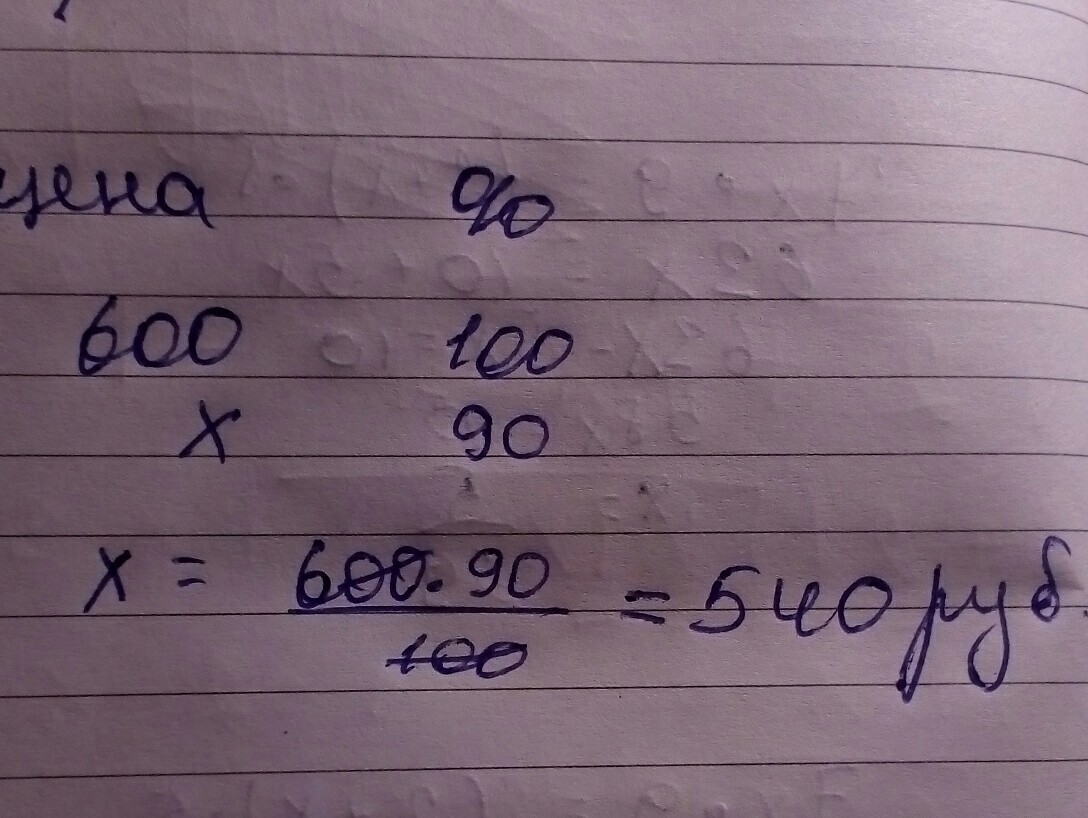 цена %
600 100
x 90
x = 600 · 90 / 100 = 540 руб.